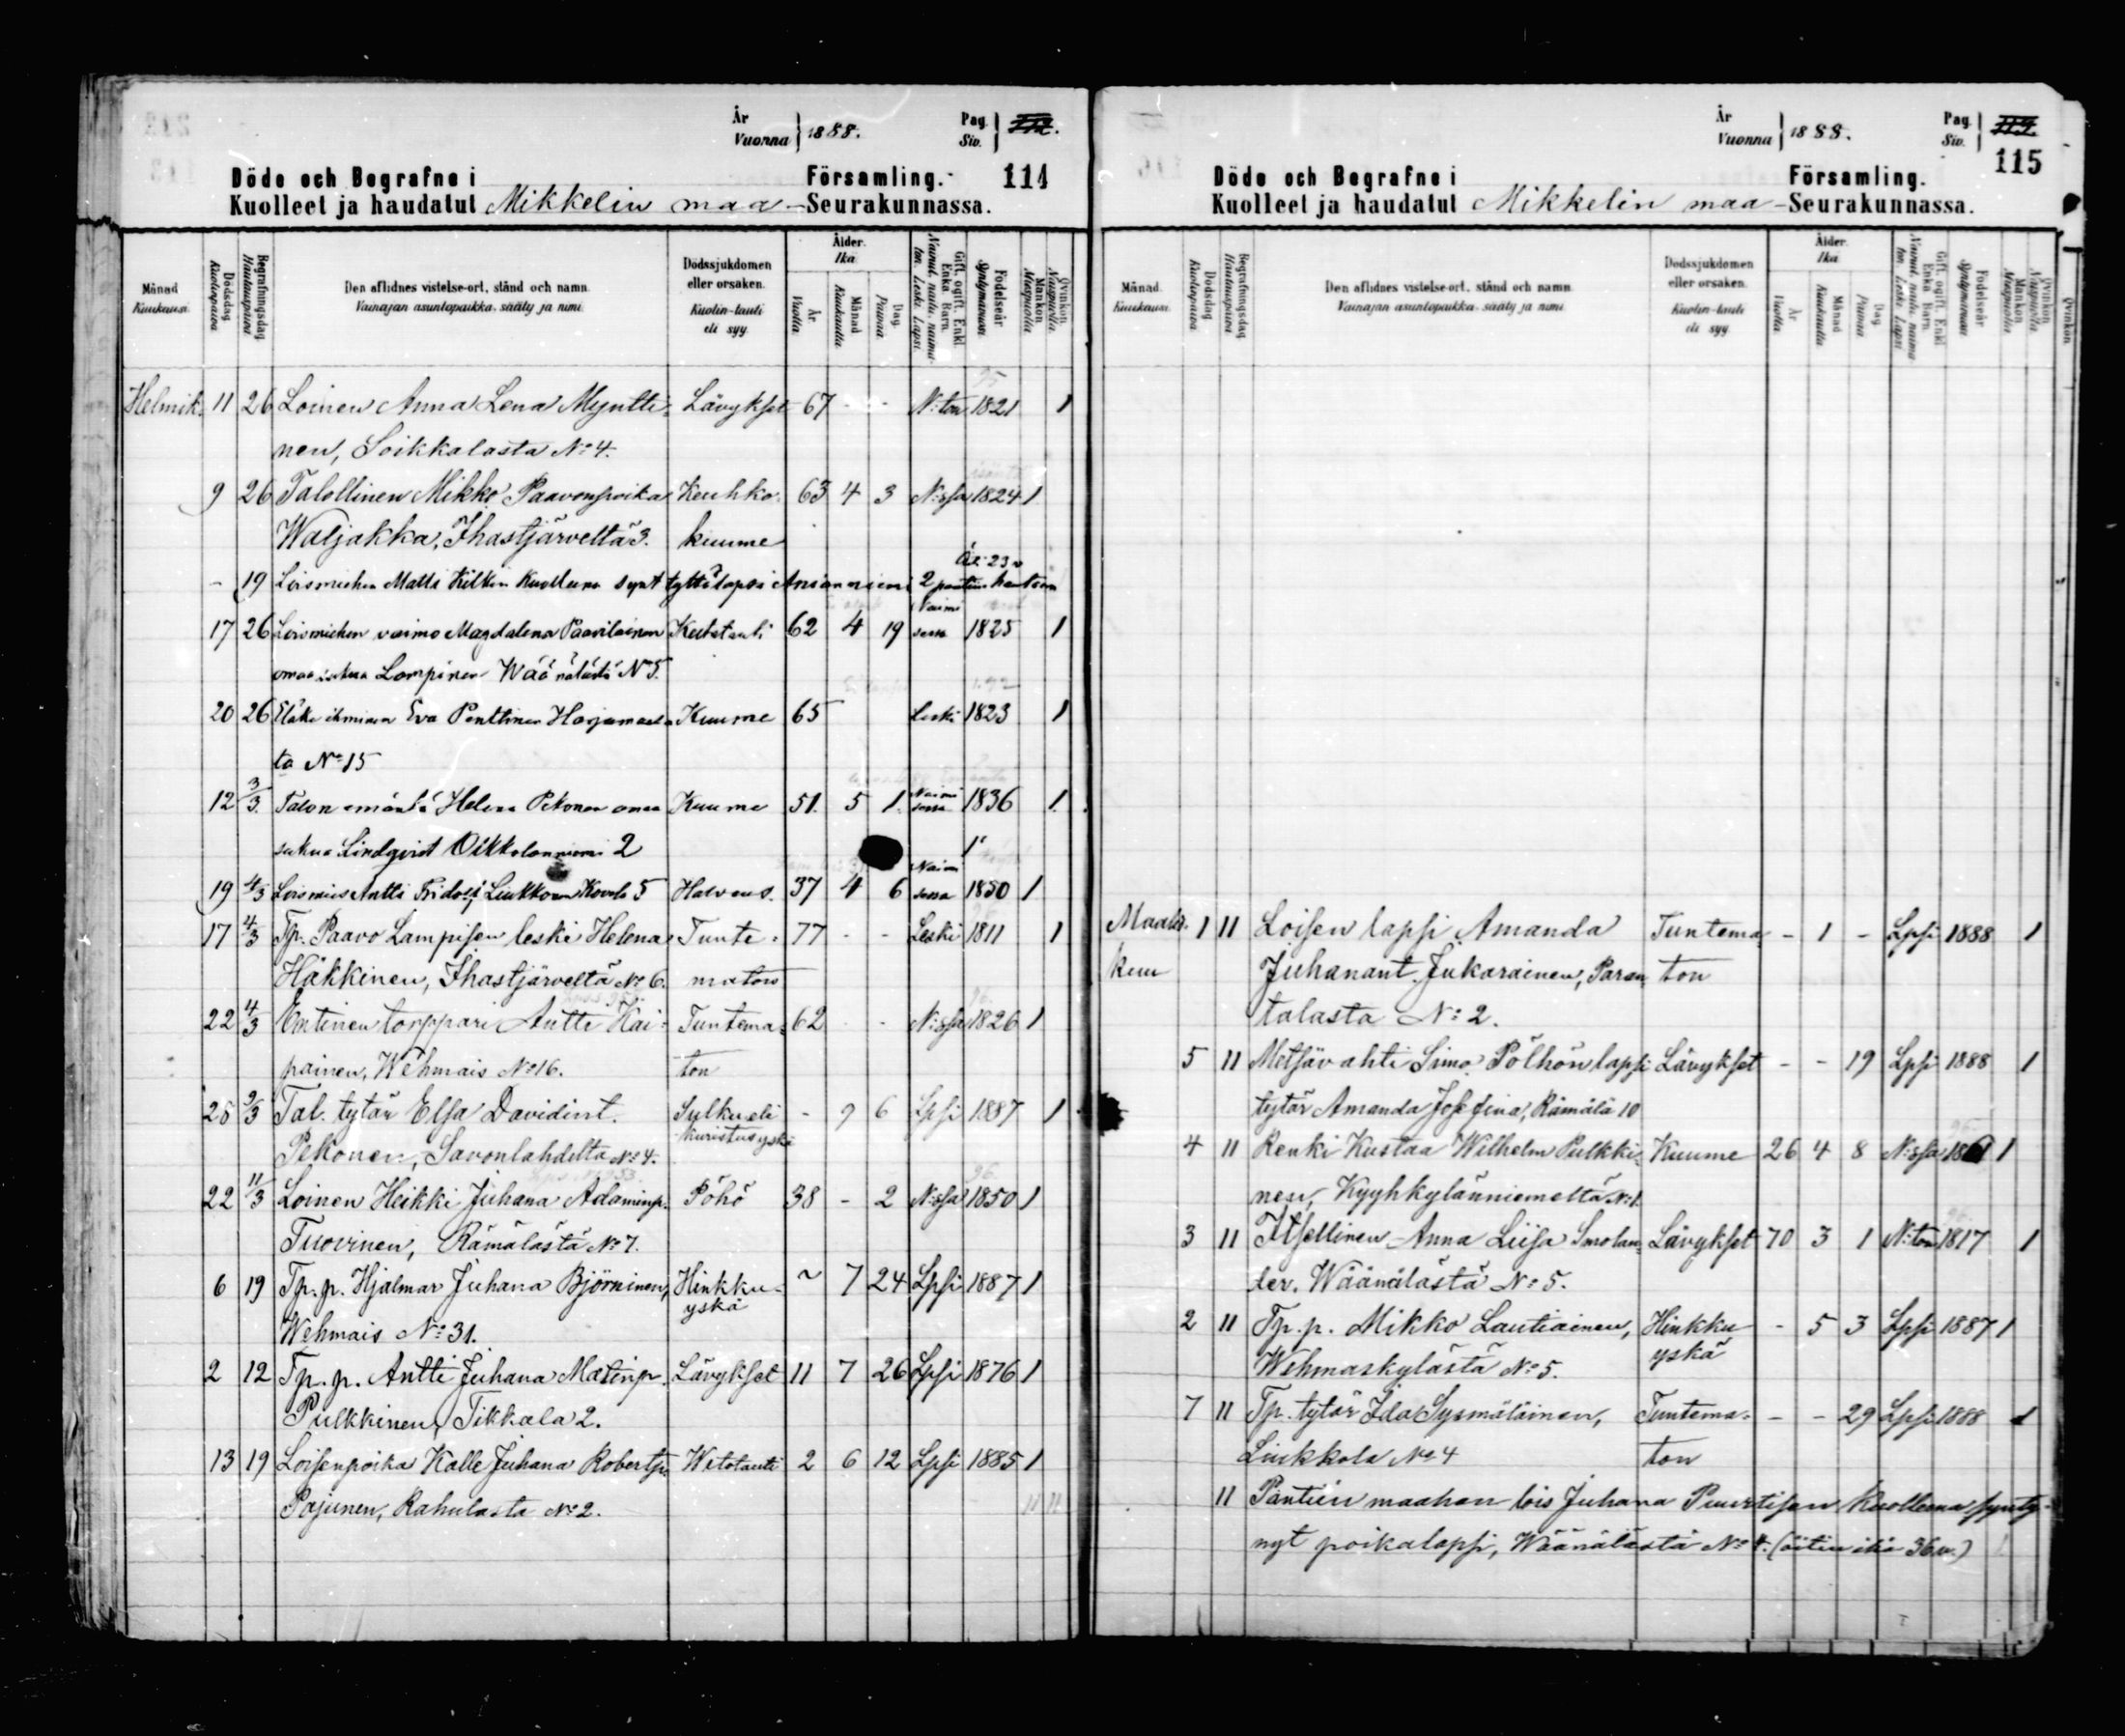 År
Vuonna } 1888.
Pag.
Siv. } 112.
Döde och Begrafne i Församling. 114
Kuolleet ja haudatut Mikkelin maa-Seurakunnassa.
Månad
Kuukausi.
Dödsdag
Kuolinpäivä
Begrafningsdag
Hautauspäivä
Den aflidnes vistelse-ort, stånd och namn.
Vainajan asuntopaikka, sääty ja nimi.
Dödssjukdomen
eller orsaken.
Kuolin-tauti
eli syy.
Ålder.
Ikä
År
Vuotta
Månad
Kuukautta
Dag.
Päivää
Gift, ogift, Enkl.
Enka. Barn.
Naimat. naitu. naima-
ton. Leski. Lapsi.
Födelseår
Syntymävuosi
Mankön
Miespuolia
Qvinkön
Naispuolia.
Helmik. 11 26 Loinen Anna Lena Myntti- Lävykset 67 - - N:ton 1821 1
nen, Soikkalasta No 4.
9 26 Talollinen Mikko Paavonpoika Keuhko- 63 4 3 N:ssa 1824 1
Waljakka, Ihastjärveltä 3. kuume
- 19 Loismiehen Matti Kilkin kuolluna synt tyttölapsi Ansanniemi 2 pantiin hautaan
Äi: 23 v
17 26 Loismiehen vaimo Magdalena Paavilainen Keltatauti 62 4 19 Naimi
sessa 1825 1
omaa sukua Lampinen Wäänälästä No 5.
20 26 Eläke ihminen Eva Penttinen Harjumaas- Kuume 65 Leski 1823 1
ta No 15
12 3/3. Talon emäntä Helena Pekonen omaa Kuume 51. 5 1. Naimi
sessa 1836 1.
sukua Lindqvist Oikkolanniemi 2
19 4/3 Loismies Antti Fridolf Liukkonen Kovala 5 Halvaus. 37 4 6 Naimi
sessa 1850 1
17 4/3 Tp. Paavo Lampisen leski Helena Tunte- 77 - - Leski 1811 1
Häkkinen, Ihastjärveltä No 6. maton
22 4/3 Entinen torppari Antti Kai- Tuntema- 62 - - N:ssa 1826 1
painen, Wehmais No 16. ton
25 9/3 Tal. tytär Elsa Davidint. Sulku eli - 9 6 Lpsi 1887 1
Pekonen, Savonlahdelta No 4. kuristusyskä
22 11/3 Loinen Heikki Juhana Adaminp. Pöhö 38 - 2 N:ssa 1850 1
Tuovinen, Rämälästä No 7.
6 19 Tp. p. Hjalmar Juhana Björninen, Hinkku- ~ 7 24 Lpsi 1887 1
Wehmais No 31. yskä
2 12 Tp. p. Antti Juhana Matinp. Lävykset 11 7 26 Lpsi 1876 1
Pulkkinen, Tikkala 2.
13 19 Loisenpoika Kalle Juhana Robertp. Wetotauti 2 6 12 Lpsi 1885 1
Pajunen, Rahulasta No 2.
År
Vuonna } 1888.
Pag.
Siv. }
115
Döde och Begrafne i Församling.
Kuolleet ja haudatut Mikkelin maa-Seurakunnassa.
Månad.
Kuukausi.
Dödsdag
Kuolinpäivä
Begrafningsdag
Hautauspäivä
Den aflidnes vistelse-ort, stånd och namn.
Vainajan asuntopaikka, sääty ja nimi.
Dödssjukdomen
eller orsaken.
Kuolin-tauti
eli syy.
Ålder.
Ikä
År
Vuotta
Månad
Kuukautta
Dag.
Päivää
Gift, ogift, Enkl.
Enka. Barn.
Naimat. naitu. naima-
ton. Leski. Lapsi.
Födelseår
Syntymävuosi
Mankön
Miespuolia
Qvinkön
Naispuolia.
Qvinkön
Maalis- 1 11 Loisen lapsi Amanda Tuntema- - 1 - Lpsi 1888 1
kuu Juhanant. Jukarainen, Paran- ton
talasta No 2.
5 11 Metsävahti Simo Pölhön lapsi Lävykset - - 19 Lpsi 1888 1
tytär Amanda Josefina, Rämälä 10
4 11 Renki Kustaa Wilhelm Pulkki- Kuume 26 4 8 N:ssa 1861 1
nen, Kyyhkylänniemeltä No 1.
3 11 Itsellinen Anna Liisa Smolan- Lävykset 70 3 1 N:ton 1817 1
der. Wäänälästä No 5.
2 11 Tp. p. Mikko Lautiainen, Hinkku - 5 3 Lpsi 1887 1
Wehmaskylästä No 5. yskä
7 11 Tp. tytär Ida Sysmäläinen, Tuntema- - - 29 Lpsi 1888 1
Liukkola No 4 ton
11 Pantiin maahan lois Juhana Puurtisen kuolleena synty-
nyt poikalapsi, Wäänälästä No 4. (äitin ikä 36 v.)